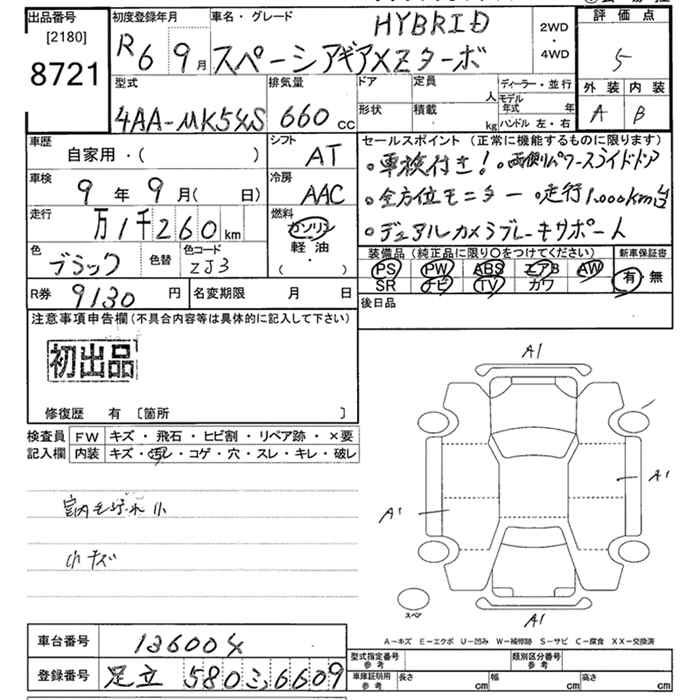 出品番号
[2180]
8721
初度登録年月
R6 9月
車名・グレード
HYBRID
スペーシアギアXZターボ
2WD
・
4WD
評価点
5
外装 内装
A B
型式
4AA-MK54S
排気量
660cc
ドア
定員
人
形状
積載
kg
ディーラー・並行
モデル年式 年
ハンドル 左・右
車歴
自家用・( )
シフト
AT
セールスポイント (正常に機能するものに限ります)
・車検付き! ・両側パワースライドドア
・全方位モニター ・走行1,000km台
・デュアルカメラブレーキサポート
車検
9年9月( 日)
冷房
AAC
走行
万1千260km
燃料
ガソリン
軽油
( ・ )
色
ブラック
色替
色コード
ZJ3
装備品 (純正品に限り○をつけてください)
新車保証書
PS PW ABS エアB AW
SR ナビ TV カワ
有・無
R券
9130円
名変期限 月 日
後日品
注意事項申告欄(不具合内容等は具体的に記入して下さい)
初出品
修復歴 有 [箇所 ]
検査員
記入欄
FW キズ・飛石・ヒビ割・リペア跡・×要
内装 キズ・汚レ・コゲ・穴・スレ・キレ・破レ
室内毛汚れ小
小キズ
A1
A1
A1
A1
スペア
A-キズ E-エクボ U-凹み W-補修跡 S-サビ C-腐食 XX-交換済
車台番号
136004
登録番号
足立 580 う 6609
型式指定番号
参考
類別区分番号
参考
車庫証明用
参考
長さ cm
幅 cm
高さ cm